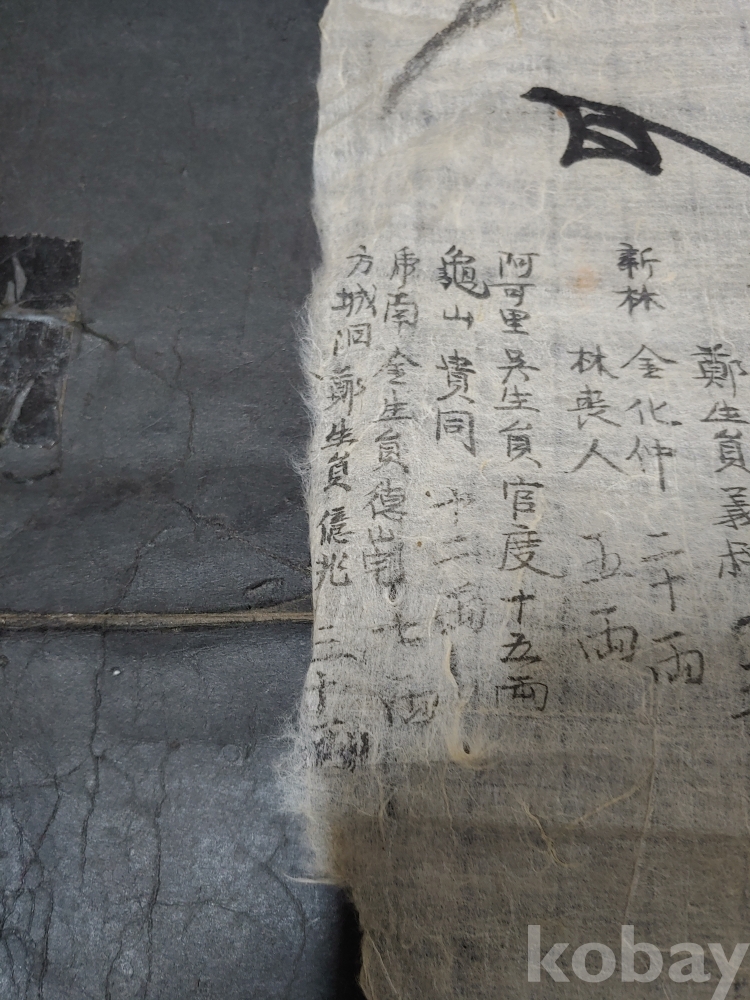 鄭生員義叔
新林 金化仲 二十両
林喪人 五両
阿可里 吳生員官度 十五両
龜山 貴同 十二両
南 金生員德 七両
方城洞 鄭生員億兆 三十両
kobay